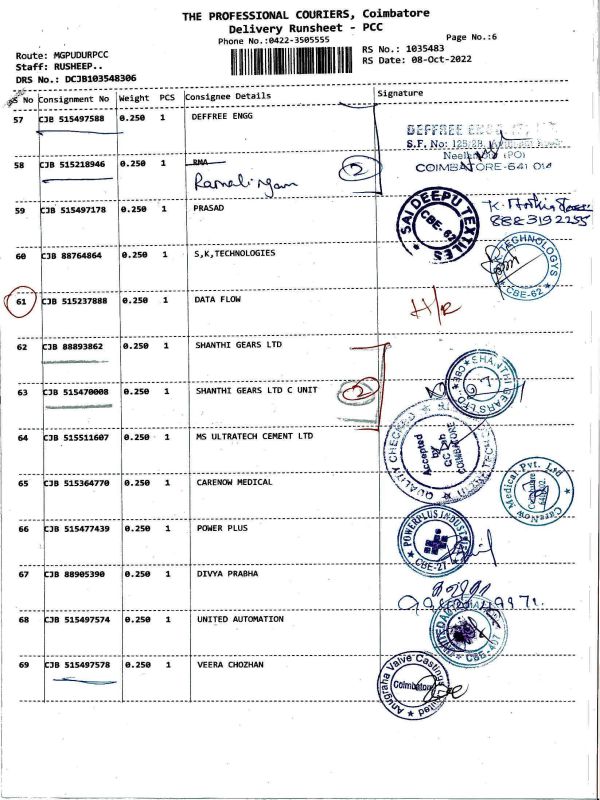 THE PROFESSIONAL COURIERS, Coimbatore
Delivery Runsheet - PCC
Phone No.:0422-3505555
Page No.:6
Route: MGPUDURPCC
RS No.: 1035483
Staff: RUSHEEP..
RS Date: 08-Oct-2022
DRS No.: DCJB103548306
S No Consignment No Weight PCS Consignee Details Signature
57 CJB 515497588 0.250 1 DEFFREE ENGG
DEFFREE ENGG
S.F. No: 125/2B,
Neelambur (PO)
COIMBATORE-641 014
58 CJB 515218946 0.250 1 RMA
Ramalingam
2
59 CJB 515497178 0.250 1 PRASAD
SAI DEEPU TEXTILES CBE-62
8883192255
60 CJB 88764864 0.250 1 S,K,TECHNOLOGIES
TECHNOLOGYS CBE-62
61 CJB 515237888 0.250 1 DATA FLOW
H/R
62 CJB 88893862 0.250 1 SHANTHI GEARS LTD
63 CJB 515470008 0.250 1 SHANTHI GEARS LTD C UNIT
2
SHANTHI GEARS LTD. CBE
64 CJB 515511607 0.250 1 MS ULTRATECH CEMENT LTD
QUALITY CHECKED
Accepted
by
COIMBATORE
65 CJB 515364770 0.250 1 CARENOW MEDICAL
CareNow Medical Pvt. Ltd
66 CJB 515477439 0.250 1 POWER PLUS
POWERPLUS INDUSTRIES CBE-21
67 CJB 88905390 0.250 1 DIVYA PRABHA
68 CJB 515497574 0.250 1 UNITED AUTOMATION
CBE-407
69 CJB 515497578 0.250 1 VEERA CHOZHAN
Anugraha Valve Castings Limited
Coimbatore